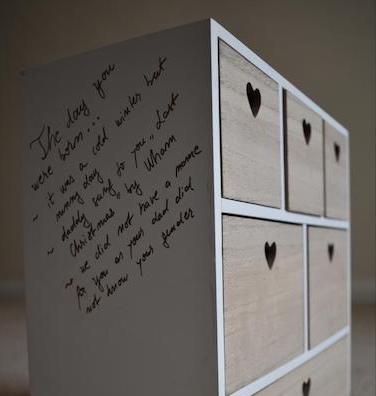 The day you
were born...
~ it was a cold winter but
sunny day
~ daddy sang for you „Last
Christmas" by Wham
~ we did not have a name
for you as your dad did
not know your gender